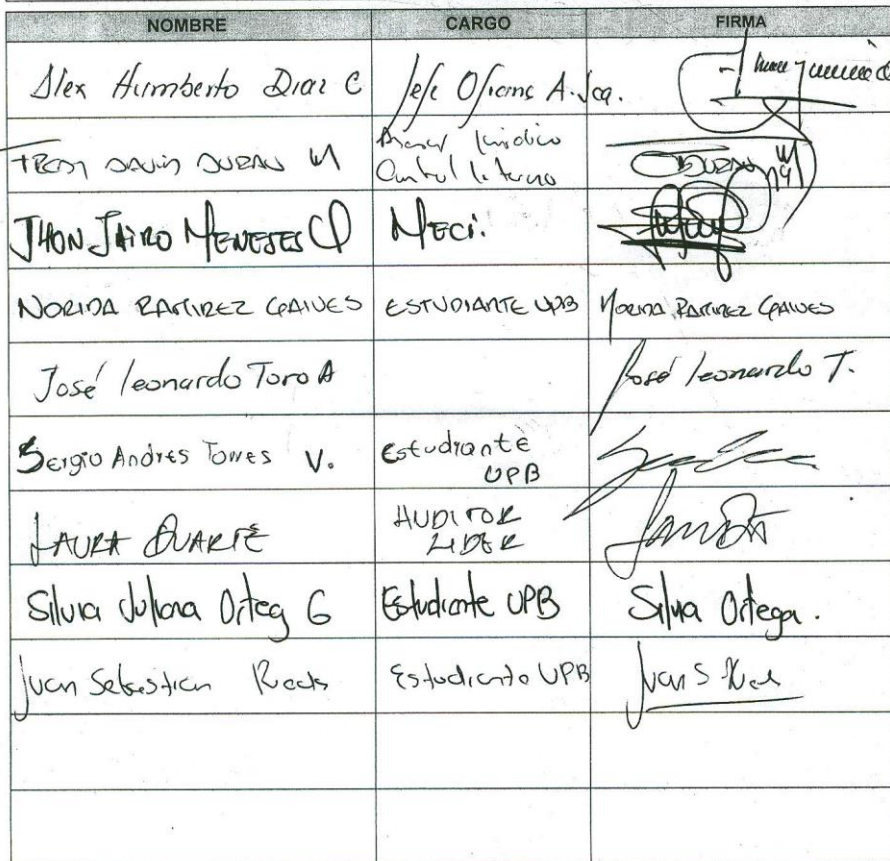 NOMBRE CARGO FIRMA
Alex Humberto Diaz C Jefe Oficina A.
DAVID DURAN M Asesor Juridico DURAN M
Control Interno
JHON JAIRO MENESES MECI.
NORIDA RAMIREZ ESTUDIANTE UPB NORIDA RAMIREZ
José leonardo Toro A José leonardo T.
Sergio Andres Torres V. Estudiante
UPB
LAURA DUARTE AUDITOR
LIDER
Silvia Juliana Orteg G Estudiante UPB Silvia Ortega.
Juan Sebastian Estudiante UPB Juan S